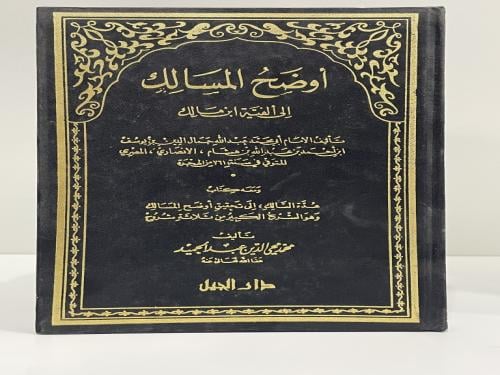 أوضح المسالك
إلى ألفية ابن مالك
تأليف الإمام أبي محمد عبد الله جمال الدين بن يوسف
ابن أحمد بن عبد الله بن هشام ، الأنصاري ، المصري
المتوفى في سنة ٧٦١ من الهجرة
ومعه كتاب
عدة السالك إلى تحقيق أوضح المسالك
وهو الشرح الكبير من ثلاثة شروح
تأليف
محمد محيي الدين عبد الحميد
عفا الله تعالى عنه
دار الجيل